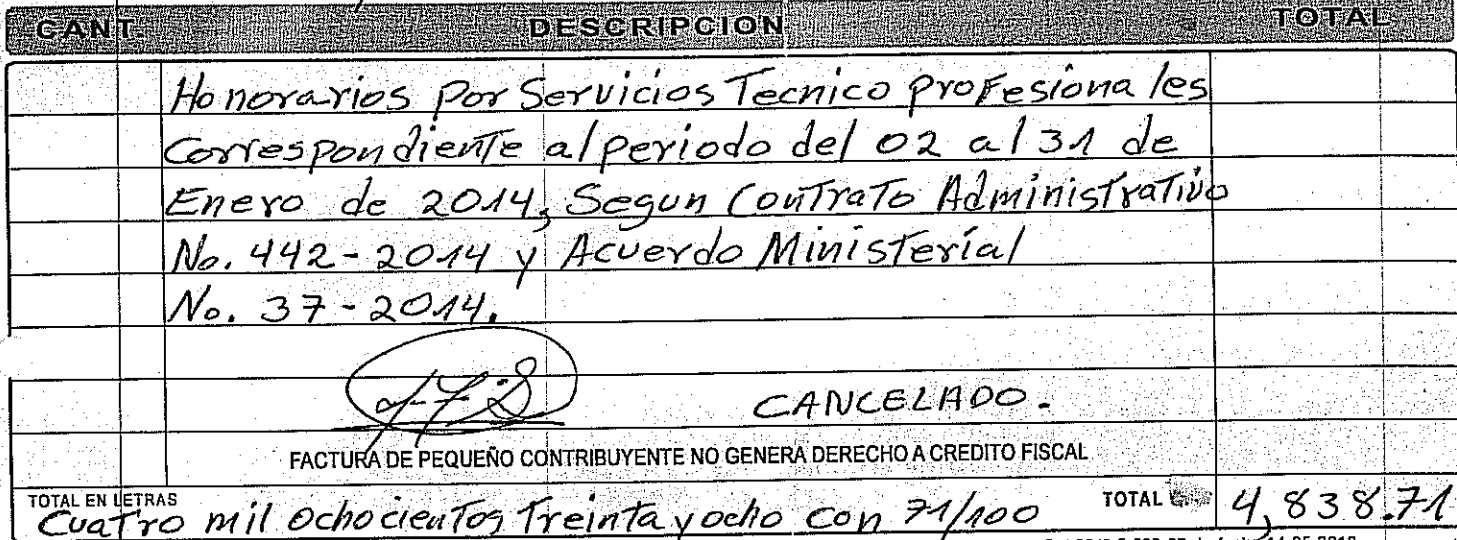 CANT. DESCRIPCION TOTAL
Honorarios Por Servicios Tecnico profesionales
Correspondiente al periodo del 02 al 31 de
Enero de 2014, Segun Contrato Administrativo
No. 442-2014 y Acuerdo Ministerial
No. 37-2014.
CANCELADO.
FACTURA DE PEQUEÑO CONTRIBUYENTE NO GENERA DERECHO A CREDITO FISCAL
TOTAL EN LETRAS
Cuatro mil Ochocientos Treinta y ocho con 71/100 TOTAL 4,838.71